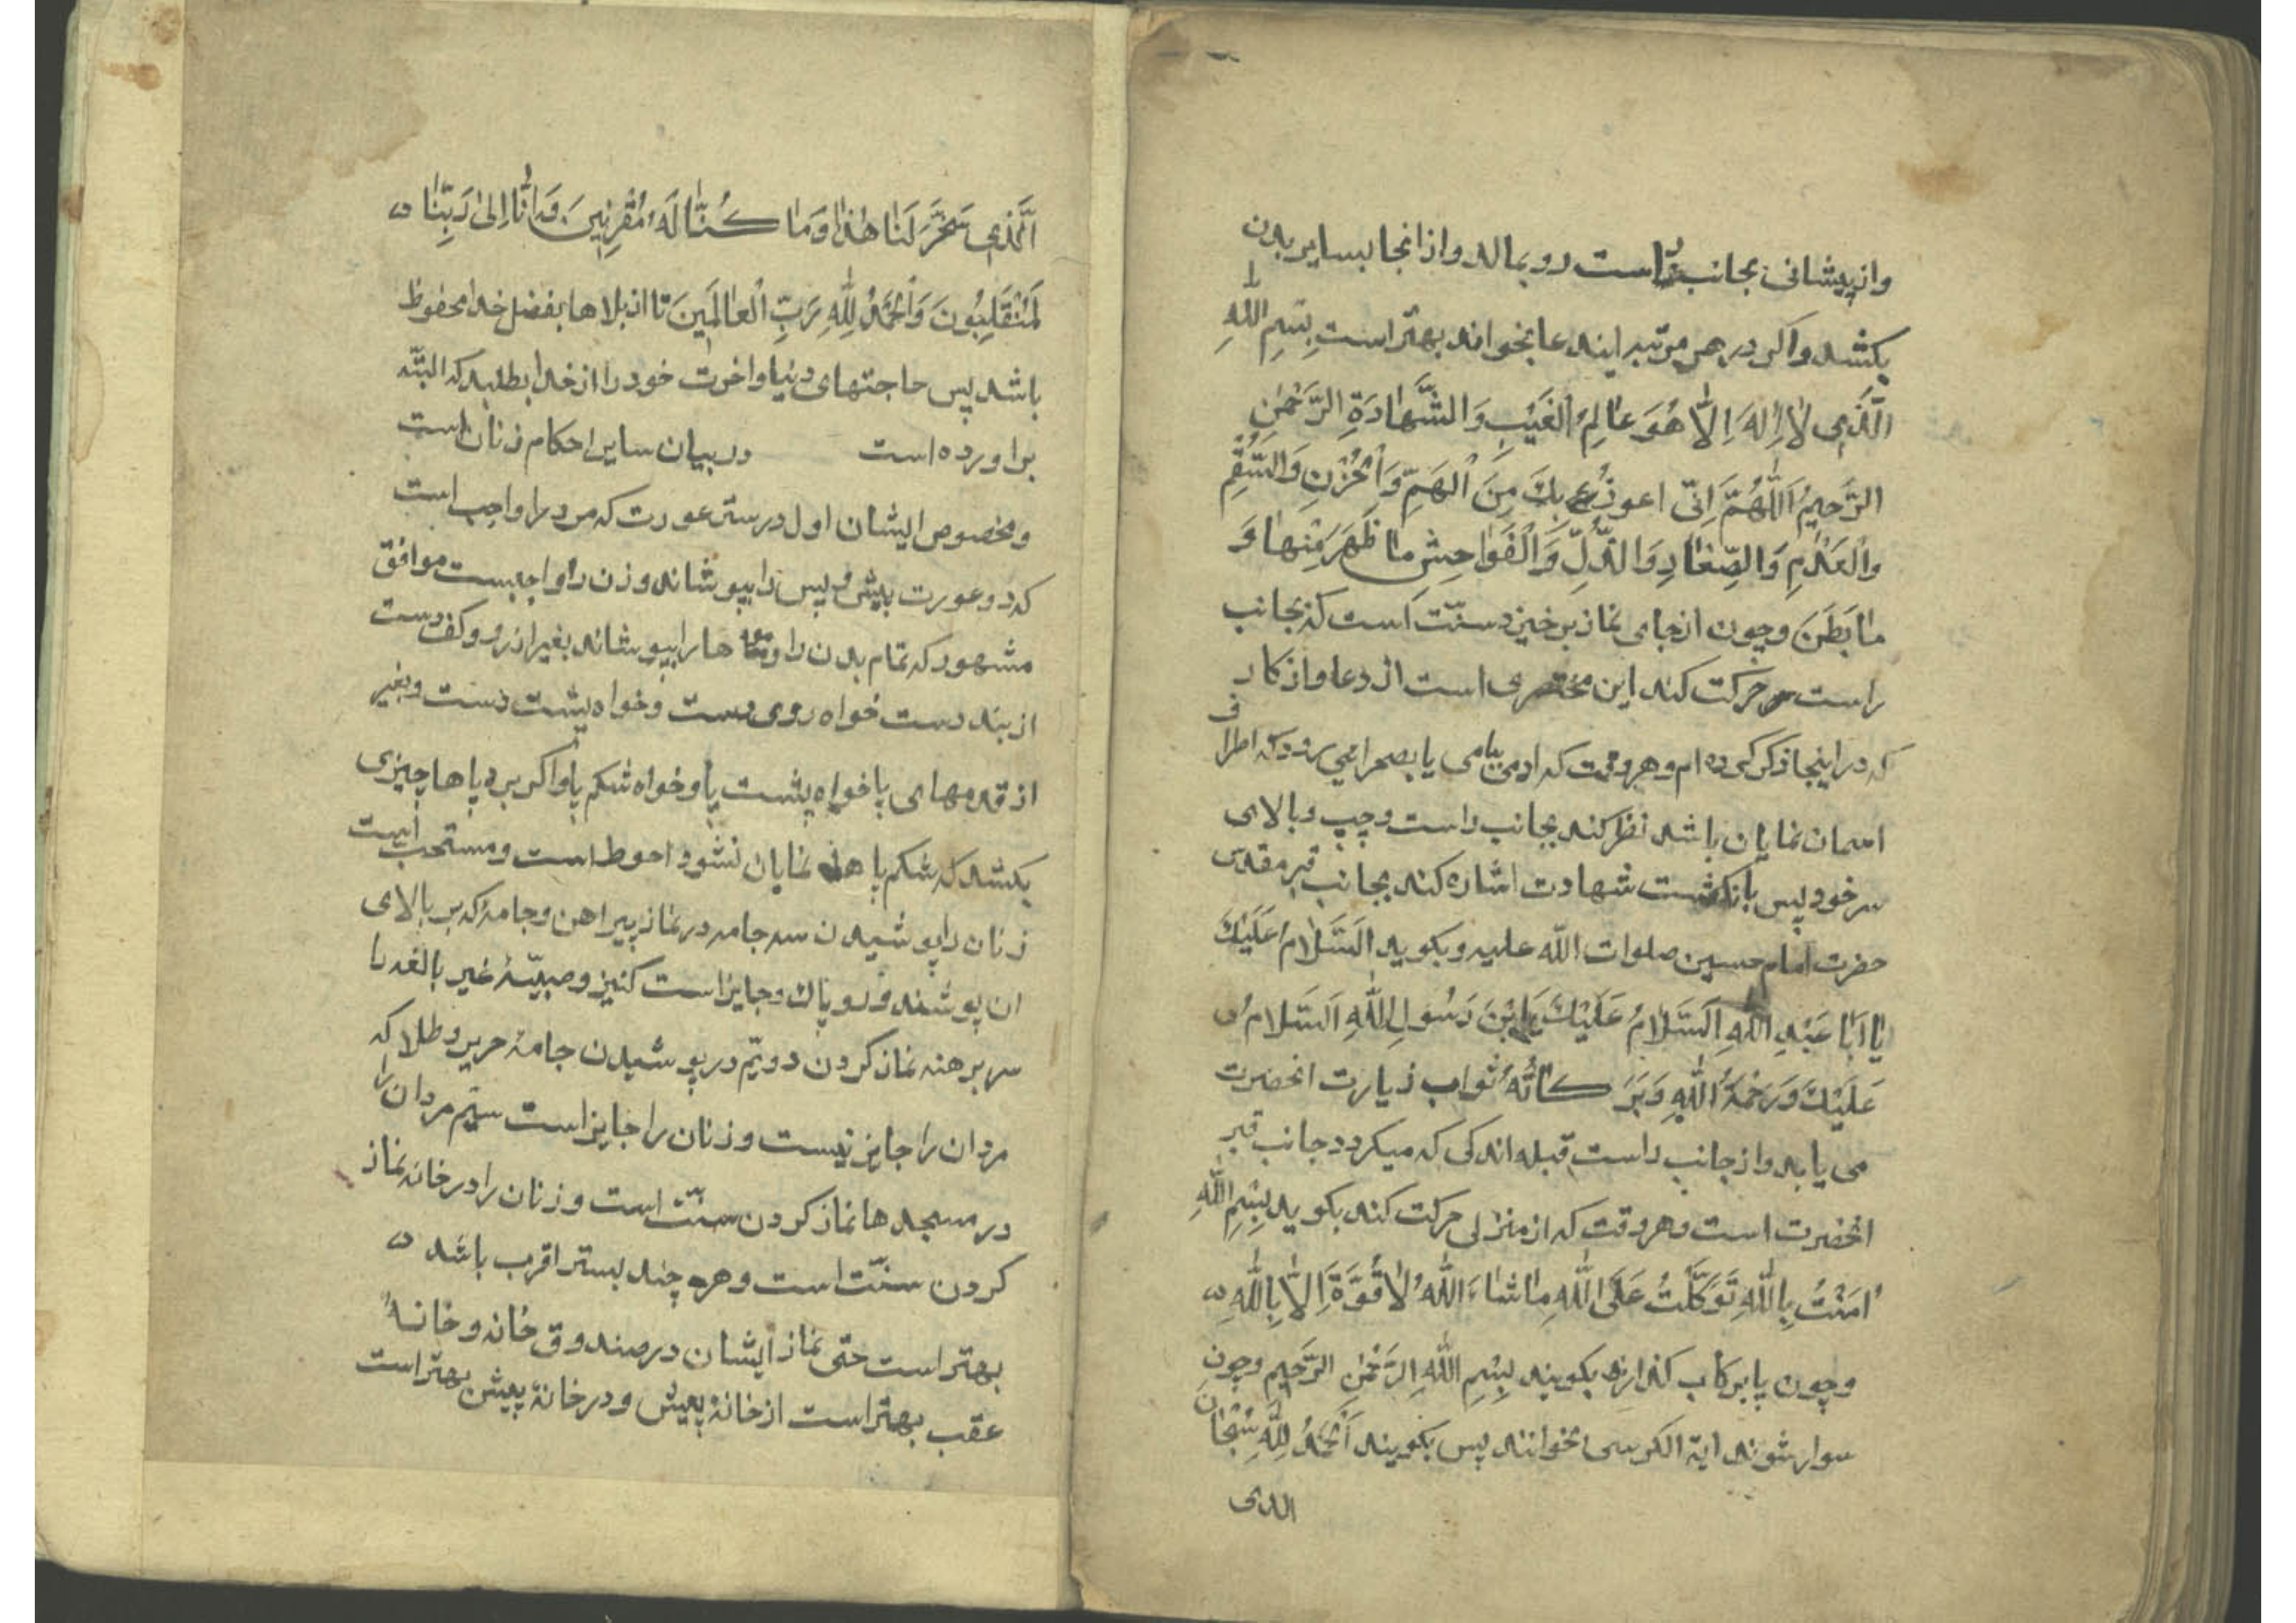 واز پیشانی بجانب راست رو بمالد واز انجا بسایر بدن
بکشد واکر در هر مرتبه ایندعا بخواند بهتر است بِسْمِ اللهِ
الَّذی لاٰ اِلٰهَ اِلاّٰ هُوَ عٰالِمُ الْغَیْبِ وَالشَّهٰادَةِ الرَّحْمٰنِ
الرَّحیمُ اَللّٰهُمَّ اِنّی اعوذُ بِكَ مِنَ الْهَمِّ وَالْحُزْنِ وَالسُّقْمِ
وَالْعَدَمِ وَالصِّغٰارِ وَالذُّلِّ وَالْفَوٰاحِشِ مٰا ظَهَرَ مِنْهٰا وَ
مٰا بَطَنَ وچون از جای نماز برخیزد سنّت است که بجانب
راست حرکت کند این مختصری است از دعا واذکار
که در اینجا ذکر کرده ام وهر وقت که ادمی ببامی یا بصحرایی رود که اطراف
اسمان نمایان باشد نظر کند بجانب راست وچپ وبالای
سر خود پس بانکشت شهادت اشاره کند بجانب قبر مقدس
حضرت امام حسین صلوات اللّه علیه وبکوید اَلسَّلٰامُ عَلَیْكَ
یٰا اَبٰا عَبْدِ اللّٰهِ اَلسَّلٰامُ عَلَیْكَ یَابْنَ رَسُولِ اللّٰهِ اَلسَّلامُ
عَلَیْكَ وَرَحْمَةُ اللّٰهِ وَبَرَکٰاتُهُ ثواب زیارت انحضرت
می یابد واز جانب راست قبله اندکی که میکردد جانب قبر
انحضرت است وهر وقت که از منزلی حرکت کند بکوید بِسْمِ اللّٰهِ
اٰمَنْتُ بِاللّٰهِ تَوَکَّلْتُ عَلَی اللّٰهِ مٰا شٰاءَ اللّٰهُ لاٰ قُوَّةَ اِلاّٰ بِاللّٰهِ
وچون پا برکاب کذارند بکویند بِسْمِ اللّٰهِ الرَّحْمٰنِ الرَّحیمِ وچون
سوار شوند ایة الکرسی بخوانند پس بکویند اَلْحَمْدُ لِلّٰهِ سُبْحٰانَ
الذی
الَّذی سَخَّرَ لَنٰا هٰذٰا وَمٰا کُنّٰا لَهُ مُقْرِنینَ وَاِنّٰا اِلیٰ رَبِّنٰا
لَمُنْقَلِبُونَ وَالْحَمْدُ لِلّٰهِ رَبِّ الْعٰالَمینَ تا از بلاها بفضل خدا محفوظ
باشد پس حاجتهای دنیا واخرت خود را از خدا بطلبد که البتّه
براورده است در بیان سایر احکام زنان است
ومخصوص ایشان اول در ستر عورت که مرد را واجب است
که دو عورت پیش و پس را بپوشاند وزن را واجبست موافق
مشهور که تمام بدن را وموها را بپوشاند بغیر از رو وکف دست
از بند دست خواه روی دست وخواه پشت دست وبغیر
از قدمهای پا خواه پشت پا وخواه شکم پا واکر بر پاها چیزی
بکشد که شکم پاها نمایان نشود احوط است ومستحب است
زنان را پوشیدن سه جامه در نماز پیراهن وجامهٔ که بر بالای
ان پوشند و رو پاك وجایز است کنیز وصبیّهٔ غیر بالغه را
سر برهنه نماز کردن دویّم در پوشیدن جامهٔ حریر وطلا که
مردان را جایز نیست وزنان را جایز است سیّم مردان را
در مسجدها نماز کردن سنّت است وزنان را در خانه نماز
کردن سنّت است وهر چند بستر اقرب باشد
بهتر است حتی نماز ایشان در صندوق خانه وخانهٔ
عقب بهتر است از خانهٔ پیش ودر خانهٔ پیش بهتر است